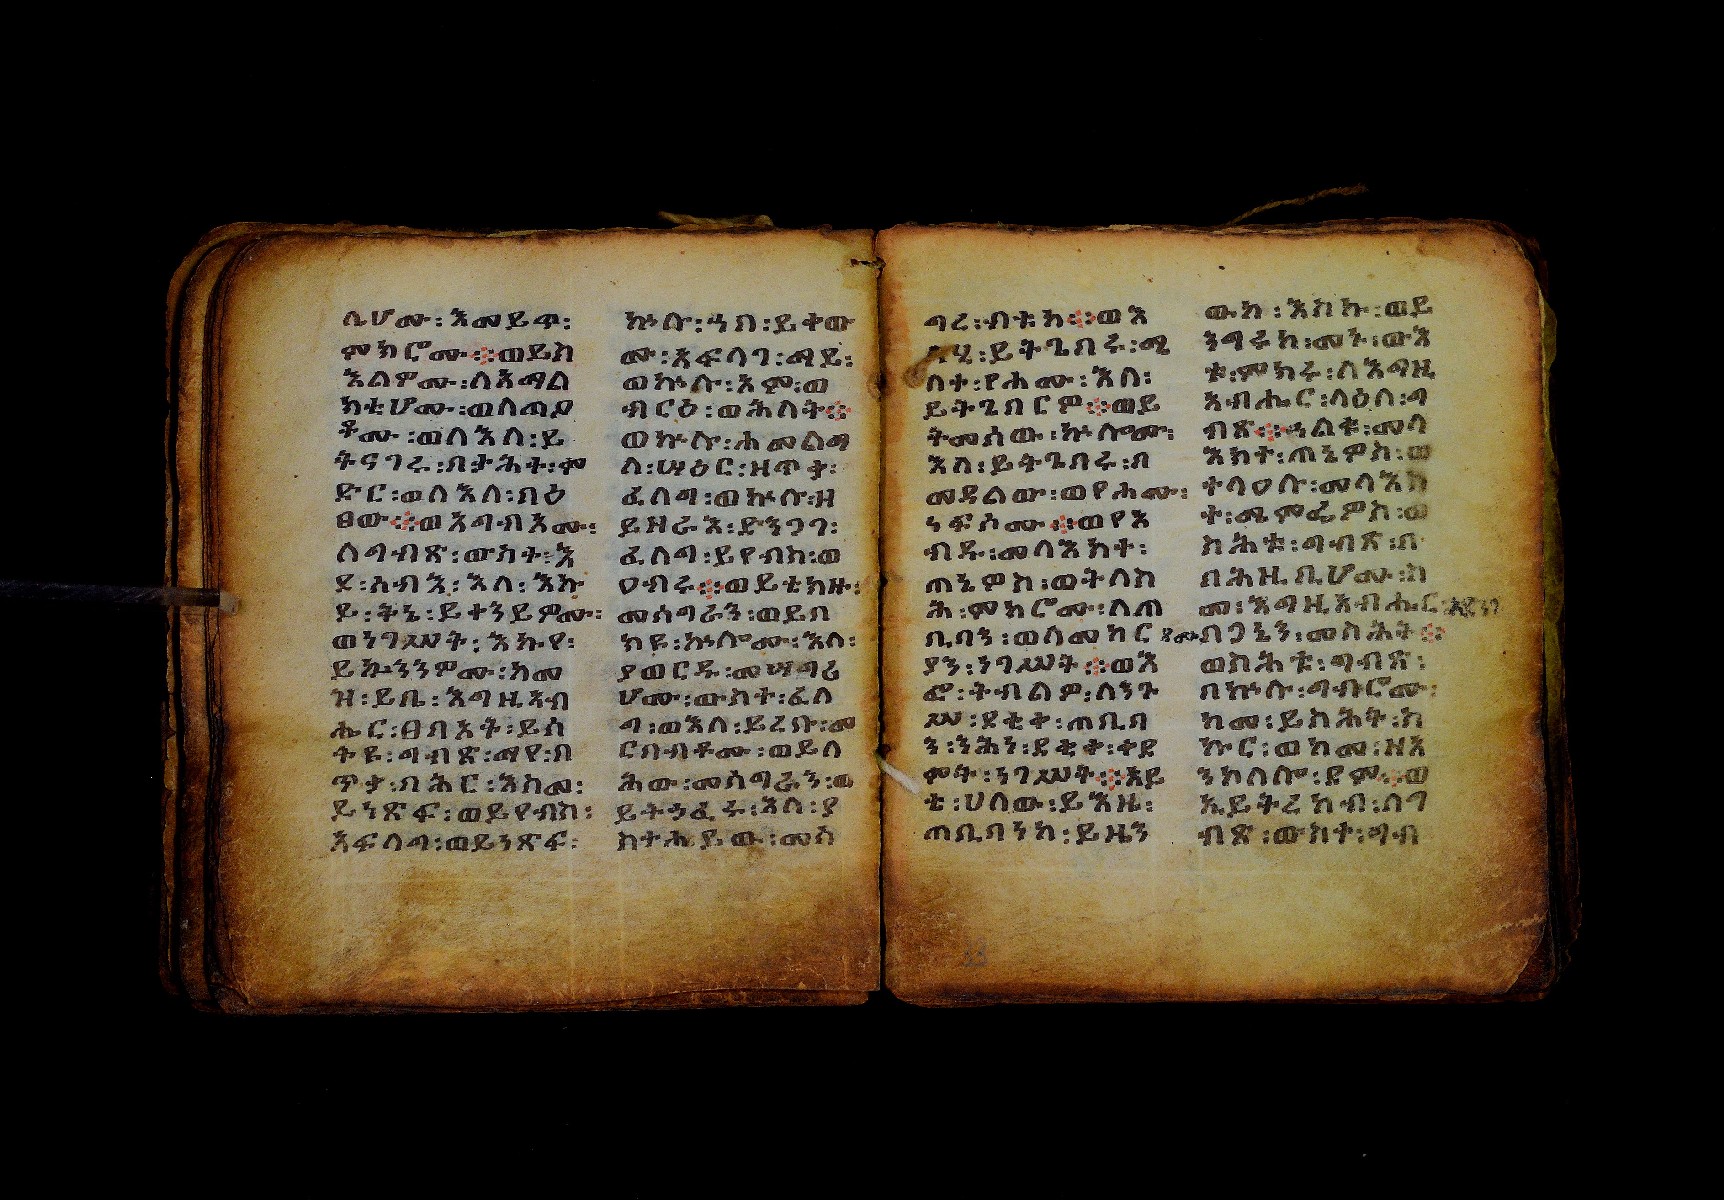 ሲሆሙ፡እመይጥ፡
ምክሮሙ፨ወይስ
እልዎሙ፡ለአማል
ክቲሆሙ፡ወለጣዖ
ቶሙ፡ወለእለ፡ይ
ትናገሩ፡በታሕተ፡ም
ድር፡ወለእለ፡በዕ
ፀው፨ወአገብኦሙ፡
ለግብጽ፡ውስተ፡እ
ደ፡ዕብእ፡እለ፡እኩ
ይ፡ይተንይዎሙ፡
ወነገሥት፡እኩየ፡
ይኴንንዎሙ፡ከመ
ዝ፡ይቤ፡እግዚአብ
ሔር፡ፀባኦት፡ይሰ
ትዩ፡ግብጽ፡ማየ፡በ
ጥቃ፡ባሕር፡እስመ፡
ይነጽፍ፡ወይየብስ፡
አፍላግ፡ወይነጽፍ፡
ኵሉ፡ኀበ፡ይቀው
ሙ፡አፍላገ፡ማይ፡
ወኵሉ፡አም፡ወ
ብርዕ፡ወሕለት፨
ወኵሉ፡ሐመልማ
ለ፡ሣዕር፡ዘጥቃ፡
ፈለግ፡ወኵሉ፡ዘ
ይዘራእ፡ድንጋገ፡
ፈለግ፡ይየብስ፡ወ
ዐብሩ፨ወይቴክዙ፡
መሰግራን፡ወይበ
ክዩ፡ኵሎሙ፡እለ፡
ያወርዱ፡መሣግሪ
ሆሙ፡ውስተ፡ፈለ
ግ፡ወእለ፡ይረቡ፡መ
ርበብቶሙ፡ወይላ
ሕው፡መሰግራን፡ወ
ይትኀፈሩ፡እለ፡ያ
ስተሐይው፡መስ
ገረ፡ብቱክ፨ወእ
ለሂ፡ይትጌበሩ፡ሜ
ላተ፡የሐሙ፡እለ፡
ይትጌበርዎ፨ወይ
ትመሰው፡ኵሎሙ፡
እለ፡ይትጌበሩ፡በ
መዳልው፡ወየሐሙ፡
ነፍሶሙ፨ወየአ
ብዱ፡መላእክተ፡
ጠኔዎስ፡ወትላስ
ሕ፡ምክሮሙ፡ለጠ
ቢባን፡ወለመከር
ያን፡ነገሥት፨ወእ
ፎ፡ትብልዎ፡ለንጉ
ሥ፡ደቂቀ፡ጠቢባ
ን፡ንሕነ፡ደቂቀ፡ቀደ
ምት፡ነገሥት፨አይ
ቴ፡ሀለው፡ይእዜ፡
ጠቢባንከ፡ይዜን
ውከ፡እስኩ፡ወይ
ንግሩከ፡መኑ፡ውእ
ቱ፡ምክሩ፡ለእግዚ
አብሔር፡ላዕለ፡ግ
ብጽ፨ኀልቁ፡መላ
እክተ፡ጠኔዎስ፡ወ
ተላዐሉ፡መላእክ
ተ፡ሜምፌዎስ፡ወ
ስሕቱ፡ግብጽ፡በ
በሕዚቢሆሙ፡ስ
መ፡እግዚአብሔር፡
በጋኔን፡መስሕት፨
ወስሕቱ፡ግብጽ፡
በኵሉ፡ግብሮሙ፡
ከመ፡ይስሕት፡ስ
ኩር፡ወከመ፡ዘአ
ንከለሎ፡ደም፨ወ
ኢይትረከብ፡ለግ
ብጽ፡ውስተ፡ግብ